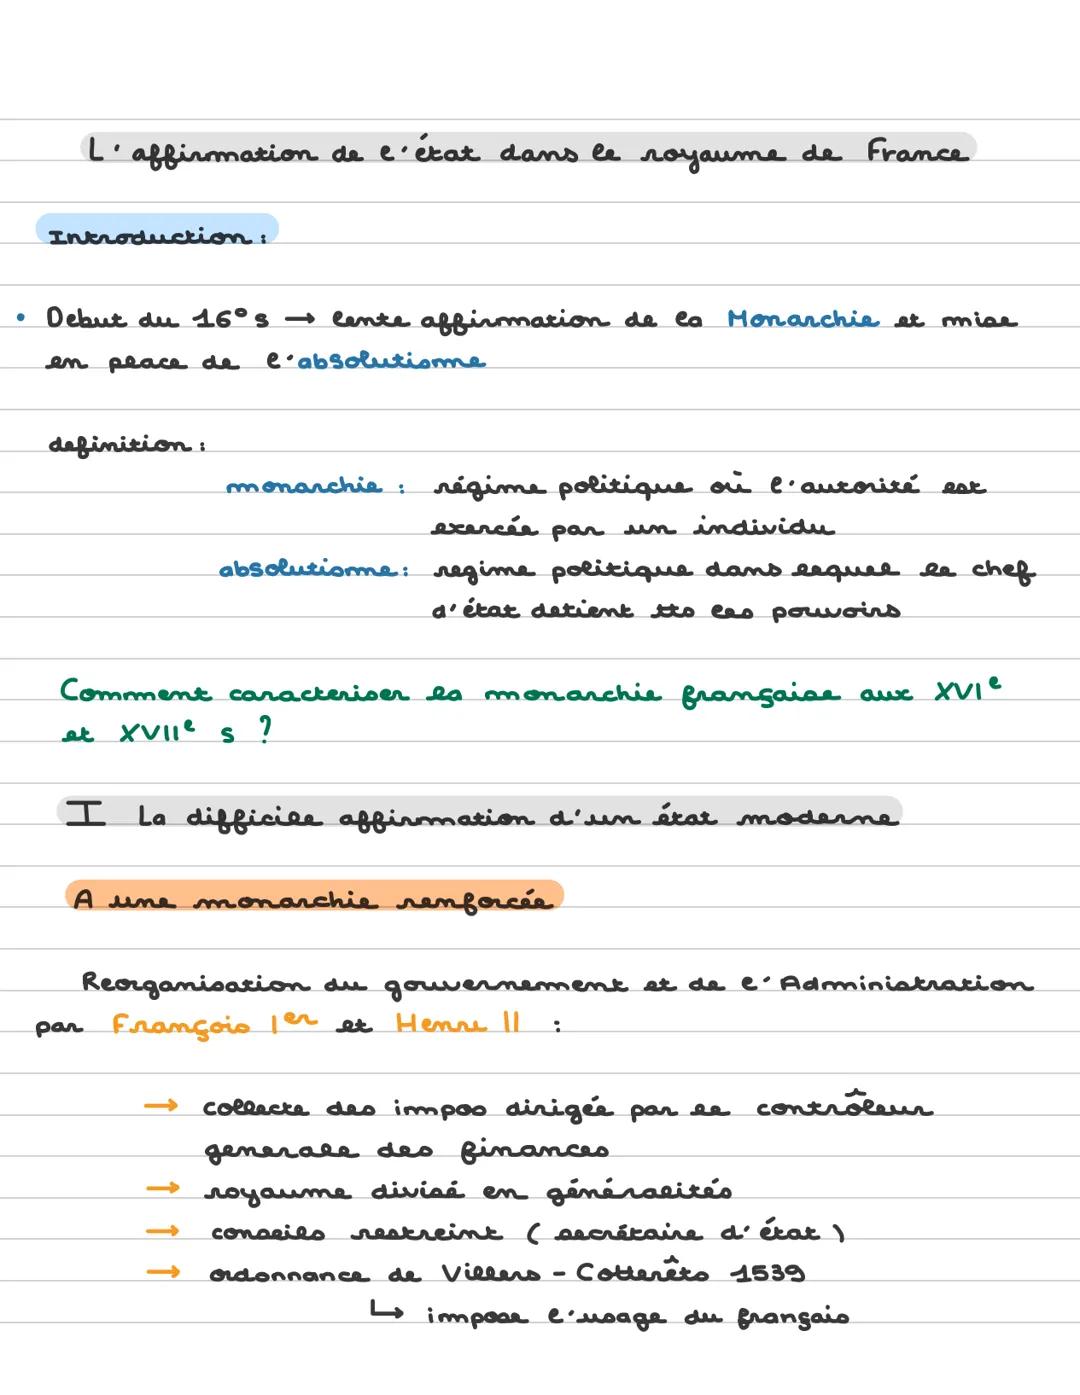 L'affirmation de l'état dans le royaume de France
Introduction :
• Debut du 16° s → lente affirmation de la Monarchie et mise
en place de l'absolutisme
definition :
monarchie : régime politique où l'autorité est
exercée par un individu
absolutisme : regime politique dans lequel le chef
d'état detient tts les pouvoirs
Comment caracteriser la monarchie française aux XVIe
et XVIIe s ?
I La difficile affirmation d'un état moderne
A une monarchie renforcée
Reorganisation du gouvernement et de l'Administration
par François 1er et Henri II :
→ collecte des impos dirigée par le contrôleur
generale des finances
→ royaume divisé en généralités
→ conseils restreint ( secrétaire d'état )
→ ordonnance de Villers - Cotterêts 1539
↳ impose l'usage du français